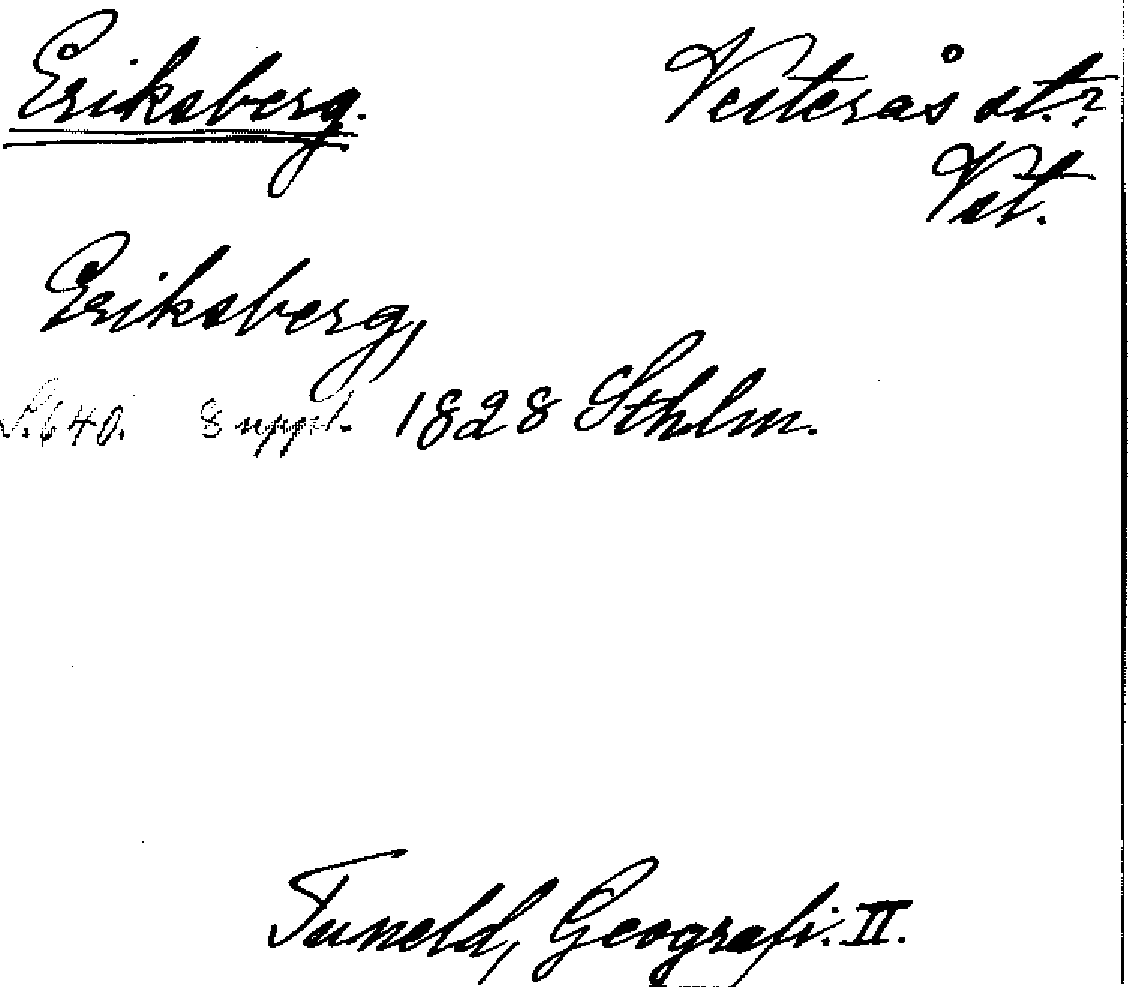 Eriksberg.
Vesterås st.?
Vst.
Eriksberg,
S. 640. 8 uppl. 1828 Sthlm.
Tuneld, Geografi. II.